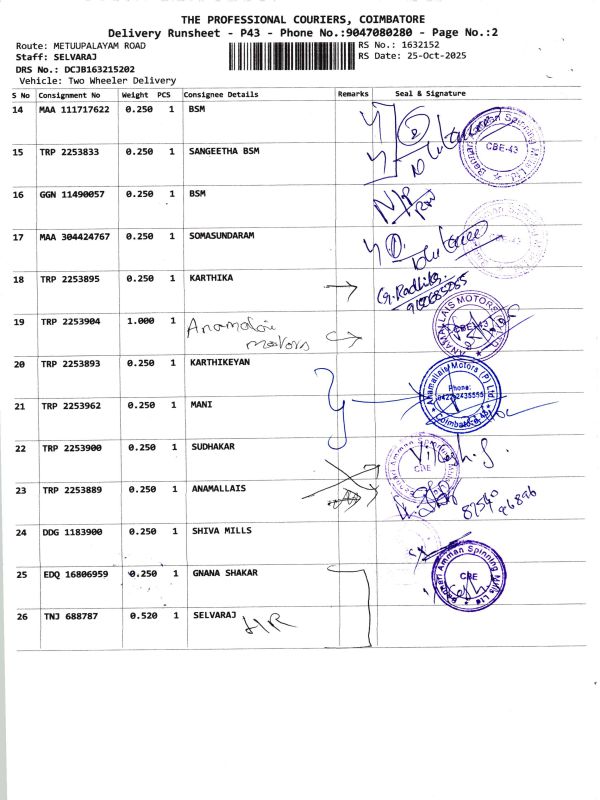 THE PROFESSIONAL COURIERS, COIMBATORE
Delivery Runsheet - P43 - Phone No.:9047080280 - Page No.:2
Route: METUUPALAYAM ROAD
RS No.: 1632152
Staff: SELVARAJ
RS Date: 25-Oct-2025
DRS No.: DCJB163215202
Vehicle: Two Wheeler Delivery
S No Consignment No Weight PCS Consignee Details Remarks Seal & Signature
14 MAA 111717622 0.250 1 BSM
15 TRP 2253833 0.250 1 SANGEETHA BSM
CBE-43
16 GGN 11490057 0.250 1 BSM
17 MAA 304424767 0.250 1 SOMASUNDARAM
CBE-43
18 TRP 2253895 0.250 1 KARTHIKA
G. Radhika
19 TRP 2253904 1.000 1 Anamalai motors
ANAMALLAIS MOTORS (P) LTD
CBE-43
20 TRP 2253893 0.250 1 KARTHIKEYAN
Anamallais Motors (P) Ltd
Phone:
21 TRP 2253962 0.250 1 MANI
Coimbatore-43
22 TRP 2253900 0.250 1 SUDHAKAR
CBE
23 TRP 2253889 0.250 1 ANAMALLAIS
87540
96896
24 DDG 1183900 0.250 1 SHIVA MILLS
25 EDQ 16806959 0.250 1 GNANA SHAKAR
Bannari Amman Spinning Mills Ltd
CBE
26 TNJ 688787 0.520 1 SELVARAJ